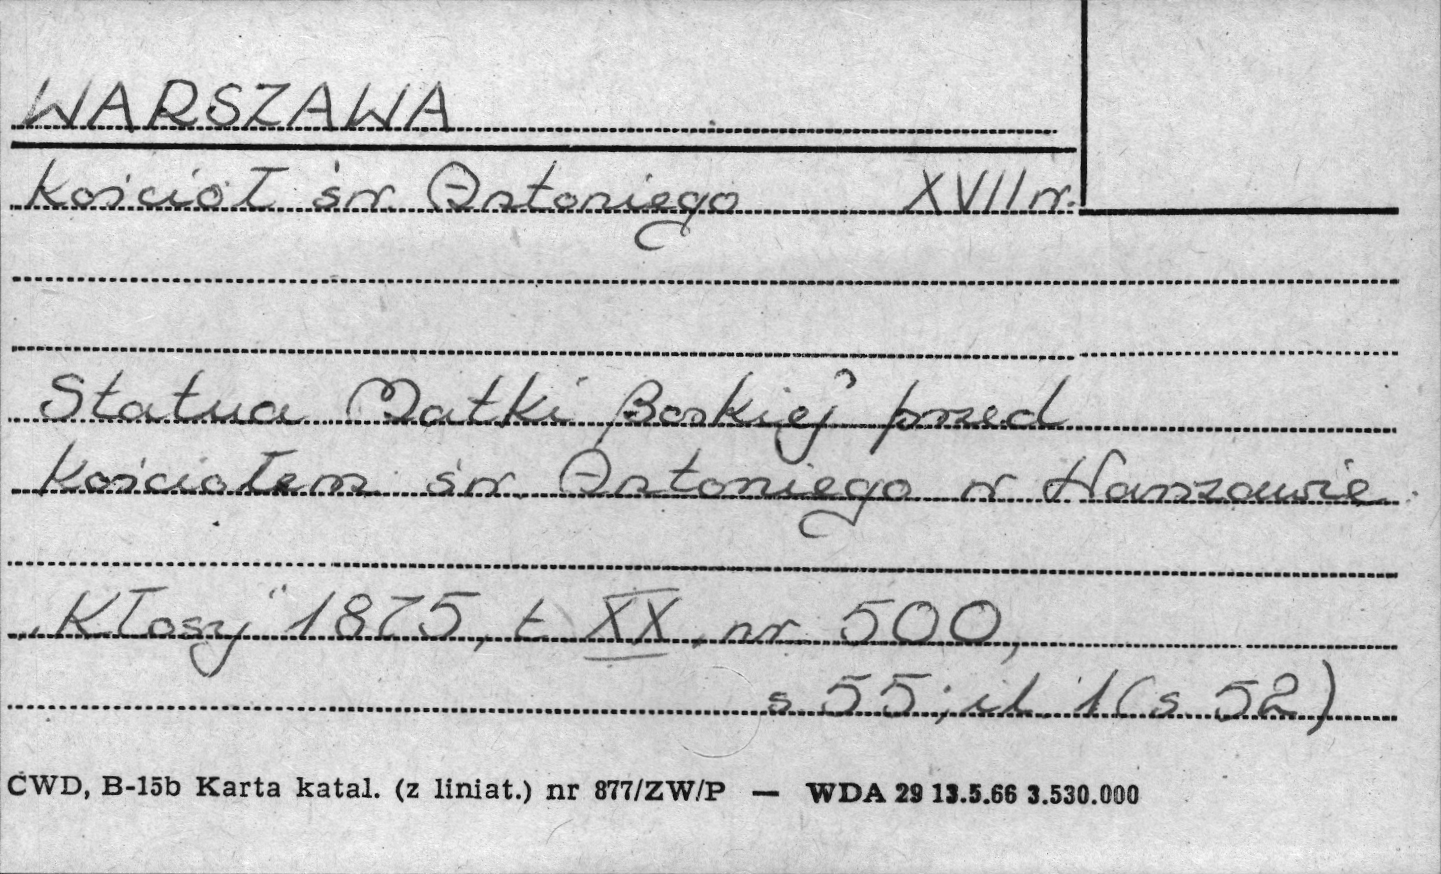 WARSZAWA
Kościół św. Antoniego XVII w.
Statua Matki Boskiej przed
Kościołem św. Antoniego w Warszawie
„Kłosy" 1875, t. XX, nr 500,
s. 55; il. 1 (s. 52)
CWD, B-15b Karta katal. (z liniat.) nr 877/ZW/P — WDA 29 13.5.66 3.530.000